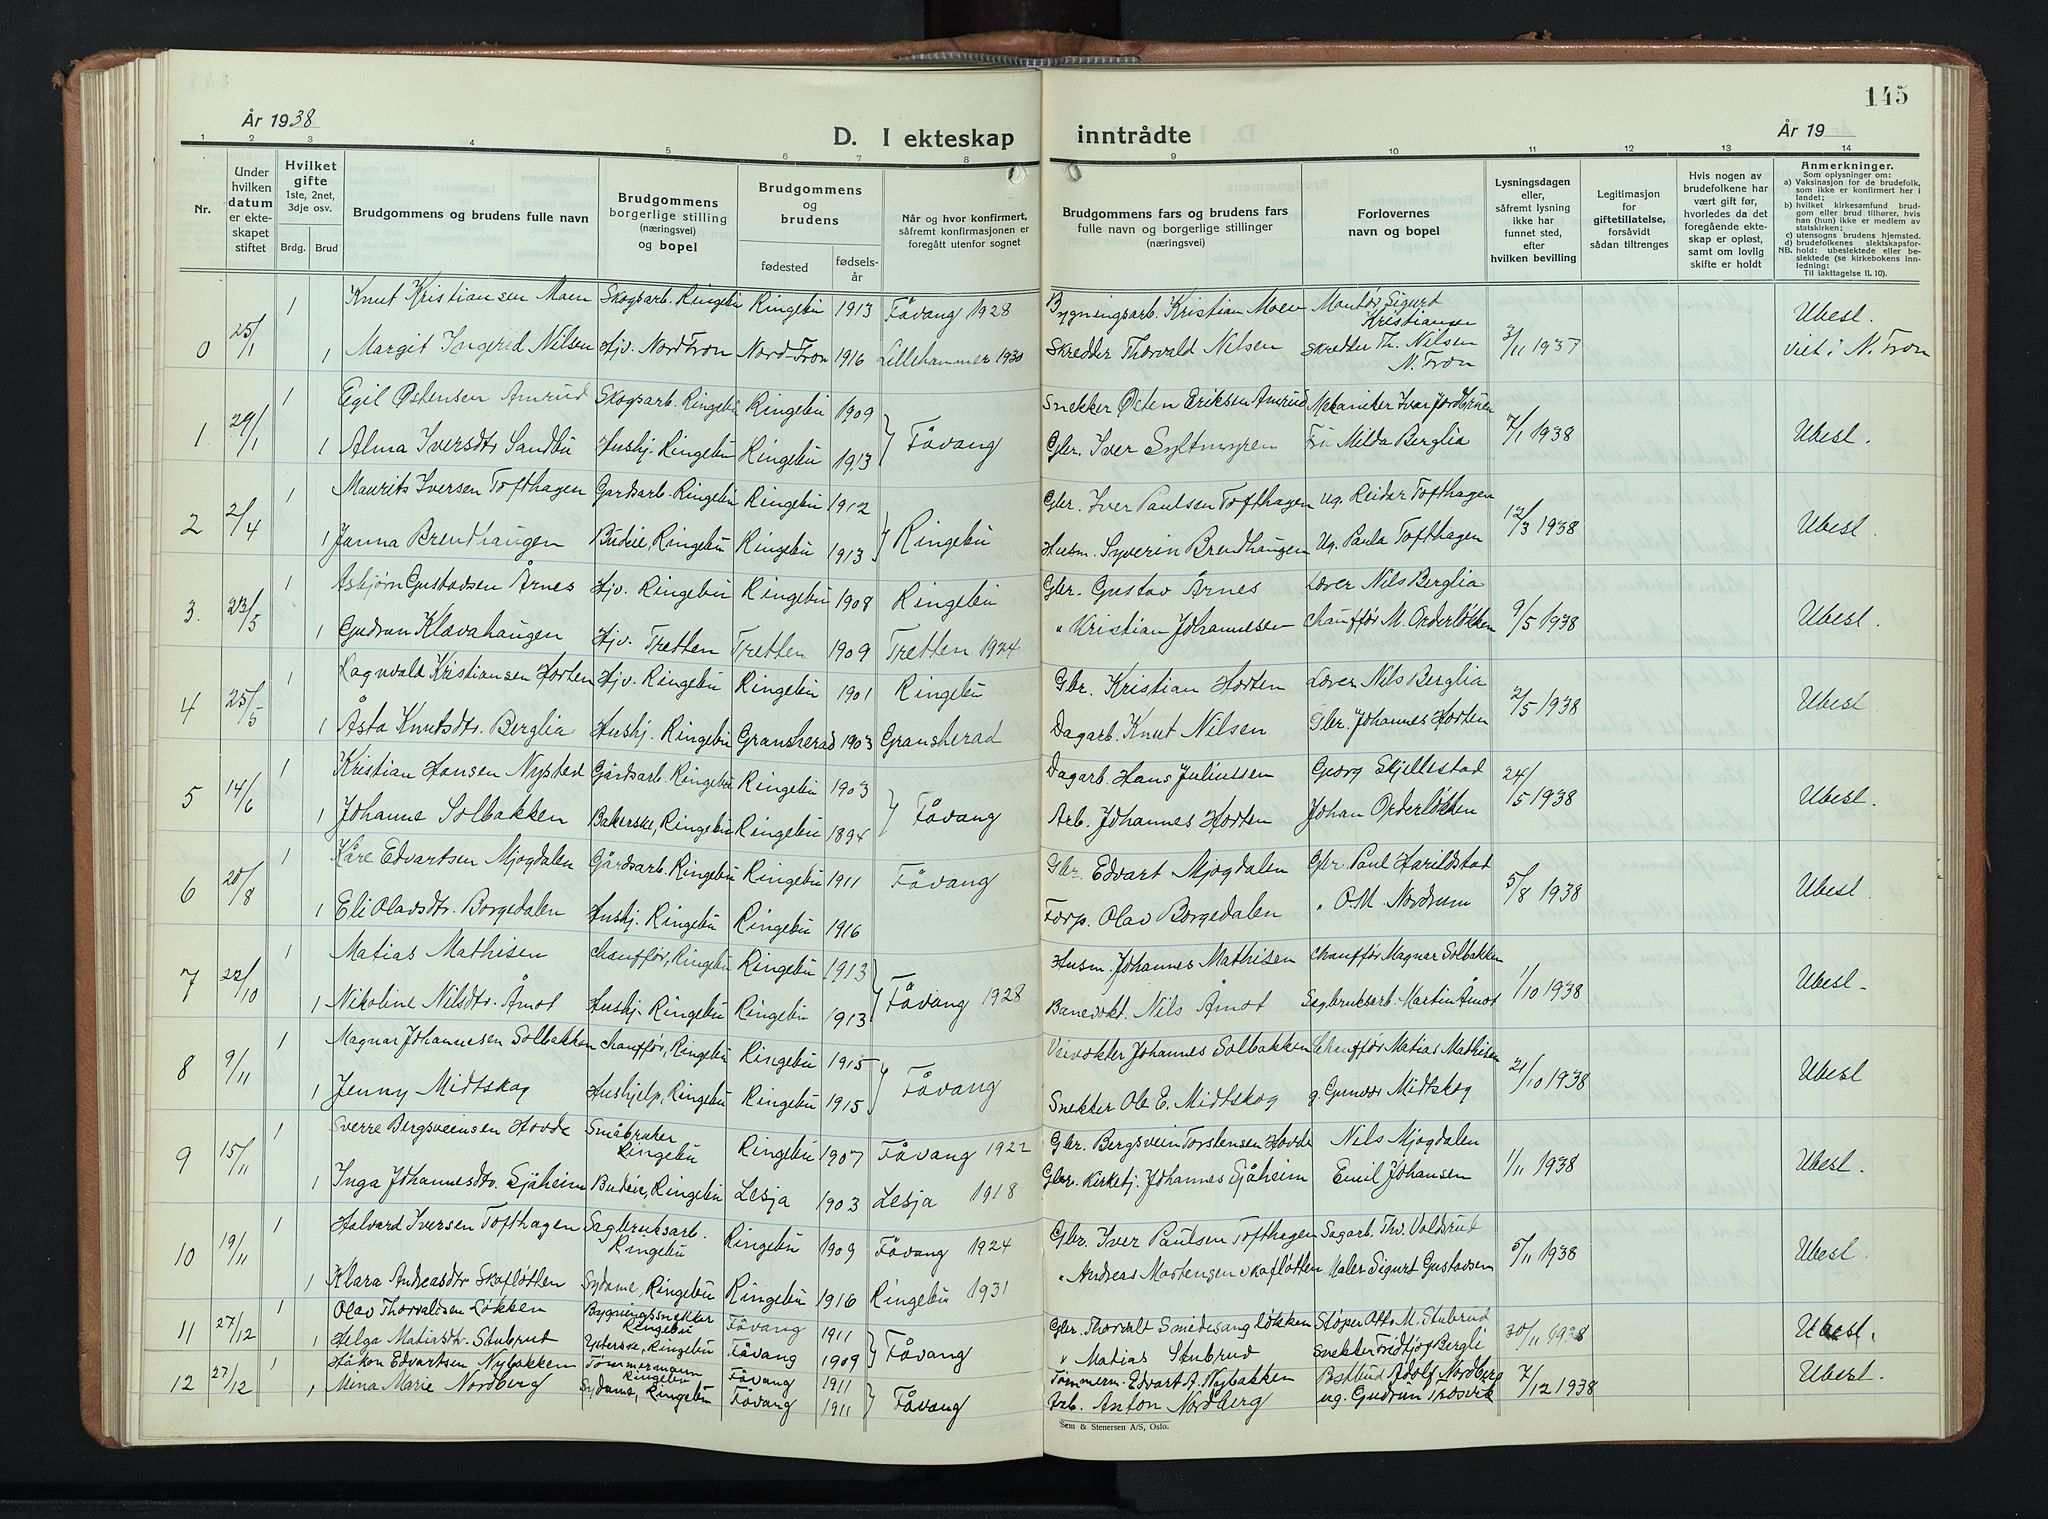 145
År 1938
D. I ekteskap inntrådte
År 19
1 2 3 4 5 6 7 8 9 10 11 12 13 14
Nr.
Under hvilken datum er ekteskapet stiftet
Hvilket gifte 1ste, 2net, 3dje osv.
Brdg. Brud
Brudgommens og brudens fulle navn
Brudgommens borgerlige stilling (næringsvei) og bopel
Brudgommens og brudens
fødested
fødselsår
Når og hvor konfirmert, såfremt konfirmasjonen er foregått utenfor sognet
Brudgommens fars og brudens fars fulle navn og borgerlige stillinger (næringsvei)
Forlovernes navn og bopel
Lysningsdagen eller, såfremt lysning ikke har funnet sted, efter hvilken bevilling
Legitimasjon for giftetillatelse, forsåvidt sådan tiltrenges
Hvis nogen av brudefolkene har vært gift før, hvorledes da det foregående ekteskap er opløst, samt om lovlig skifte er holdt
Anmerkninger.
Som oplysninger om:
a) Vaksinasjon for de brudefolk, som ikke er konfirmert her i landet;
b) hvilket kirkesamfund brudgom eller brud tilhører, hvis han (hun) ikke er medlem av statskirken;
c) utensogns brudens hjemsted.
d) brudefolkenes slektskapsforhold: ubeslektede eller beslektede (se kirkebokens innledning:
NB. Til iakttagelse II. 10).
0 25/1 1 Knut Kristiansen Moen Skogsarb. Ringebu Ringebu 1913 Fåvang 1928 Bygningsarb. Kristian Moen Montør Sigurd Kristiansen 3/11 1937 Ubesl.
1 Margit Ingerid Nilsen Hjv. Nord Fron Nord-Fron 1916 Lillehammer 1930 Skredder Thorvald Nilsen Skredder Th. Nilsen N. Fron Viet i N. Fron
1 29/1 1 Egil Østensen Amrud Skogsarb. Ringebu Ringebu 1909 Fåvang Snekker Østen Eriksen Amrud Mekaniker Ivar Jordbruen 7/1 1938 Ubesl.
1 Alma Iversdtr Sandbu Hushj. Ringebu Ringebu 1913 Gbr. Iver Syltmyren Frú Milda Berglia
2 2/4 1 Maurits Iversen Tofthagen Gardsarb. Ringebu Ringebu 1912 Ringebu Gbr. Iver Paulsen Tofthagen Ug. Reidar Tofthagen 12/3 1938 Ubesl.
1 Janna Brendhaugen Budeie, Ringebu Ringebu 1913 Husm. Syverin Brendhaugen Ug. Paula Tofthagen
3. 23/5 1 Asbjørn Gustavsen Årnes Hjv. Ringebu Ringebu 1908 Ringebu Gbr. Gustav Årnes Lærer Nils Berglia 9/5 1938 Ubesl.
1 Gudrun Klævahaugen Hjv. Tretten Tretten 1909 Tretten 1924 " Kristian Johannessen Chauffør M. Orderløkken
4 25/5 1 Ragnvald Kristiansen Horten Hjv. Ringebu Ringebu 1901 Ringebu Gbr. Kristian Horten Lærer Nils Berglia 2/5 1938 Ubesl.
1 Åsta Knutsdtr. Berglia Hushj. Ringebu Gransherad 1903 Gransherad Dagarb. Knut Nilsen Gbr. Johannes Horten
5 14/6 1 Kristian Hansen Nysted Gårdsarb. Ringebu Ringebu 1903 Fåvang Dagarb. Hans Juliussen Georg Skjellestad 24/5 1938 Ubesl.
1 Johanne Solbakken Bakerske, Ringebu Ringebu 1894 Arb. Johannes Horten Johan Orderløkken
6 20/8 1 Kåre Edvartsen Mjogdalen Gårdsarb. Ringebu Ringebu 1911 Fåvang Gbr. Edvart Mjogdalen Gbr. Paul Harildstad 5/8 1938 Ubesl.
1 Eli Olavsdtr. Borgedalen Hushj. Ringebu Ringebu 1916 Forp. Olav Borgedalen " O.M. Nordrum
7 22/10 1 Matias Mathisen Chauffør, Ringebu Ringebu 1913 Fåvang 1928 Husm. Johannes Mathisen Chauffør Magnar Solbakken 1/10 1938 Ubesl.
1 Nikoline Nilsdtr. Åmot Hushj. Ringebu Ringebu 1913 Banevokt. Nils Åmot Sagbruksarb. Martin Åmot
8 9/11 1 Magnar Johannesen Solbakken Chauffør, Ringebu Ringebu 1915 Fåvang Veivokter Johannes Solbakken Chauffør Matias Mathisen 21/10 1938 Ubesl
1 Jenny Midtskog Hushjelp, Ringebu Ringebu 1915 Snekker Ole E. Midtskog g. Gunvor Midtskog
9 15/11 1 Sverre Bergsveinsen Hovde Småbruker Ringebu Ringebu 1907 Fåvang 1922 Gbr. Bergsvein Torstensen Hovde Nils Mjogdalen 1/11 1938 Ubesl.
1 Inga Johannesdtr. Sjåheim Budeie, Ringebu Lesja 1903 Lesja 1918 Gbr. Kirketj. Johannes Sjåheim Emil Johansen
10 19/11 1 Halvard Iversen Tofthagen Sagbruksarb. Ringebu Ringebu 1909 Fåvang 1924 Gbr. Iver Paulsen Tofthagen Sagarb. Thv. Voldsrud 5/11 1938 Ubesl.
1 Klara Andreasdtr Skafløtten Sydame, Ringebu Ringebu 1916 Ringebu 1931 " Andreas Mortensen Skafløtten Maler Sigurt Gustavsen
11 27/12 1 Olav Thorvaldsen Løkken Bygningssnekker Ringebu Fåvang 1911 Fåvang Gbr. Thorvalt Smedisang Løkken Støper Otto M. Stubrud 30/11 1938 Ubesl.
1 Helga Matiasdtr. Stubrut Ysterske, Ringebu Fåvang 1909 " Matias Stubrud Snekker Fridtjof Bergli
12 27/12 1 Håkon Edvartsen Nybakken Tømmermann Ringebu Fåvang 1911 Fåvang Tømmerm. Edvart A. Nybakken Postbud Adolf Nordberg 7/12 1938 Ubesl.
1 Mina Marie Nordberg Sydame, Ringebu Fåvang 1911 Arb. Anton Nordberg ug. Gudrun
Sem & Stenersen A/S, Oslo.